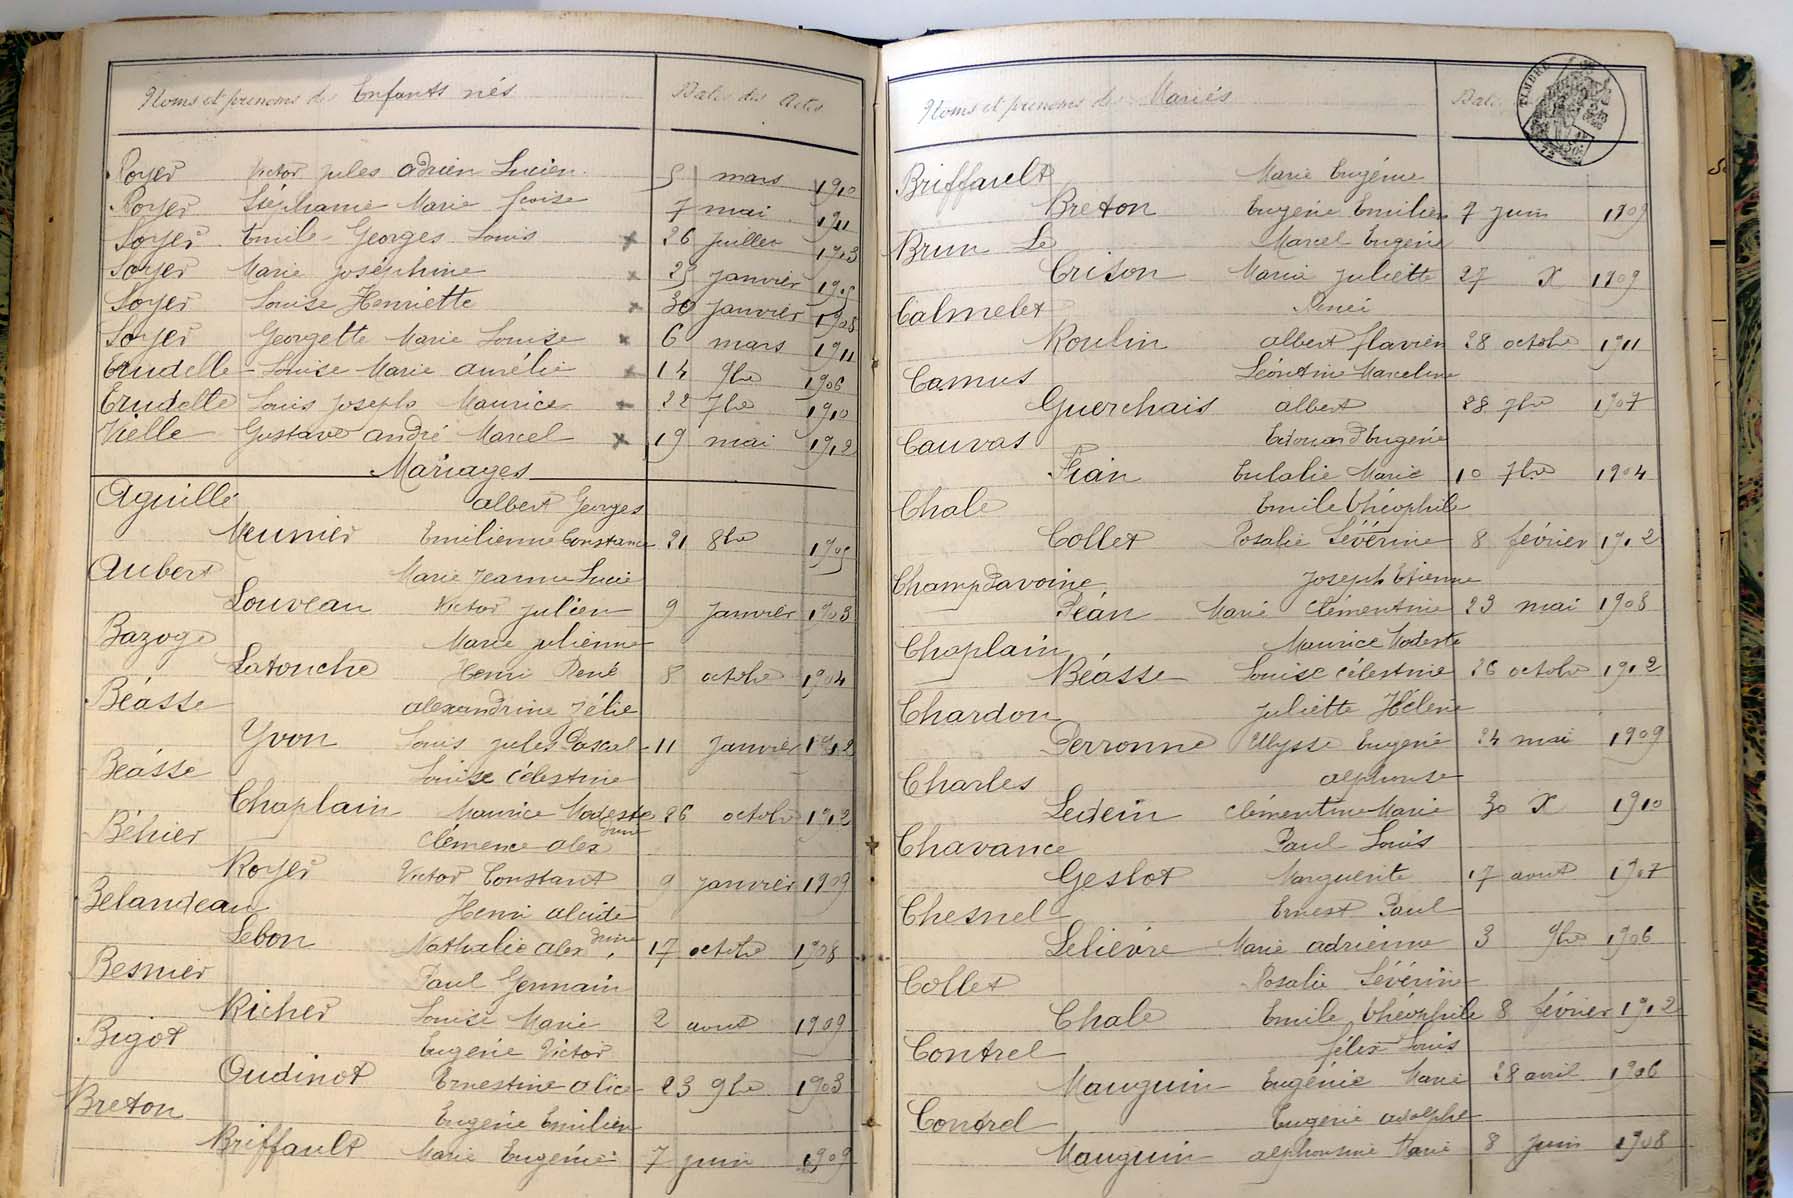 Noms et prénoms des Enfants nés Dates des Actes
Royer Victor Jules Adrien Lucien 5 mars 1910
Royer Stéphanie Marie 7 mai 1911
Soyer Emile Georges Louis x 26 juillet 1903
Soyer Marie Joséphine x 23 janvier 1905
Soyer Louise Henriette x 30 janvier 1908
Soyer Georgette Marie Louise x 6 mars 1911
Trudelle Louise Marie Aurélie x 14 9bre 1906
Trudelle Louis Joseph Maurice x 22 7bre 1910
Vielle Gustave André Marcel x 19 mai 1912
Mariages
Aguillé Albert Georges
Meunier Emilienne Constance 21 8bre 1905
Aubert Marie Jeanne Lucie
Louveau Victor Julien 9 janvier 1903
Bazoge Marie Julienne
Latouche Henri René 8 octobre 1904
Béasse Alexandrine Zélie
Yvon Louis Jules Pascal 11 janvier 1912
Béasse Louise Célestine
Chaplain Maurice Modeste 26 octobre 1912
Béhier Clémence Alexdrine
Royer Victor Constant 9 janvier 1909
Belandeau Henri Alcide
Lebon Nathalie Alexdrine 17 octobre 1908
Besnier Paul Germain
Richer Louise Marie 2 aout 1909
Bigot Eugène Victor
Oudinot Ernestine Alice 23 9bre 1903
Breton Eugène Emilien
Briffault Marie Eugénie 7 juin 1909
Noms et prénoms des Mariés Dates
TIMBRE
Briffault Marie Eugénie
Breton Eugène Emilien 7 juin 1909
Brun Le Marcel Eugène
Crison Maria Juliette 27 X 1909
Calmelet Renée
Roulin Albert Flavien 28 octobre 1911
Camus Léontine Marceline
Guerchais Albert 28 7bre 1907
Cauvas Edouard Eugène
Pian Eulalie Marie 10 7bre 1904
Chale Emile Théophile
Collet Rosalie Sévérine 8 février 1912
Champdavoine Joseph Etienne
Péan Marie Clémentine 23 mai 1908
Chaplain Maurice Modeste
Béasse Louise Célestine 26 octobre 1912
Chardon Juliette Hélène
Perronne Ulysse Eugène 24 mai 1909
Charles Alphonse
Ledein Clémentine Marie 30 X 1910
Chavance Paul Louis
Geslot Marguerite 17 aout 1907
Chesnel Ernest Paul
Lelièvre Marie Adrienne 3 9bre 1906
Collet Rosalie Sévérine
Chale Emile Théophile 8 février 1912
Contrel Félix Louis
Mauguin Eugénie Marie 28 avril 1906
Contrel Eugène Adolphe
Mauguin Alphonsine Marie 8 juin 1908